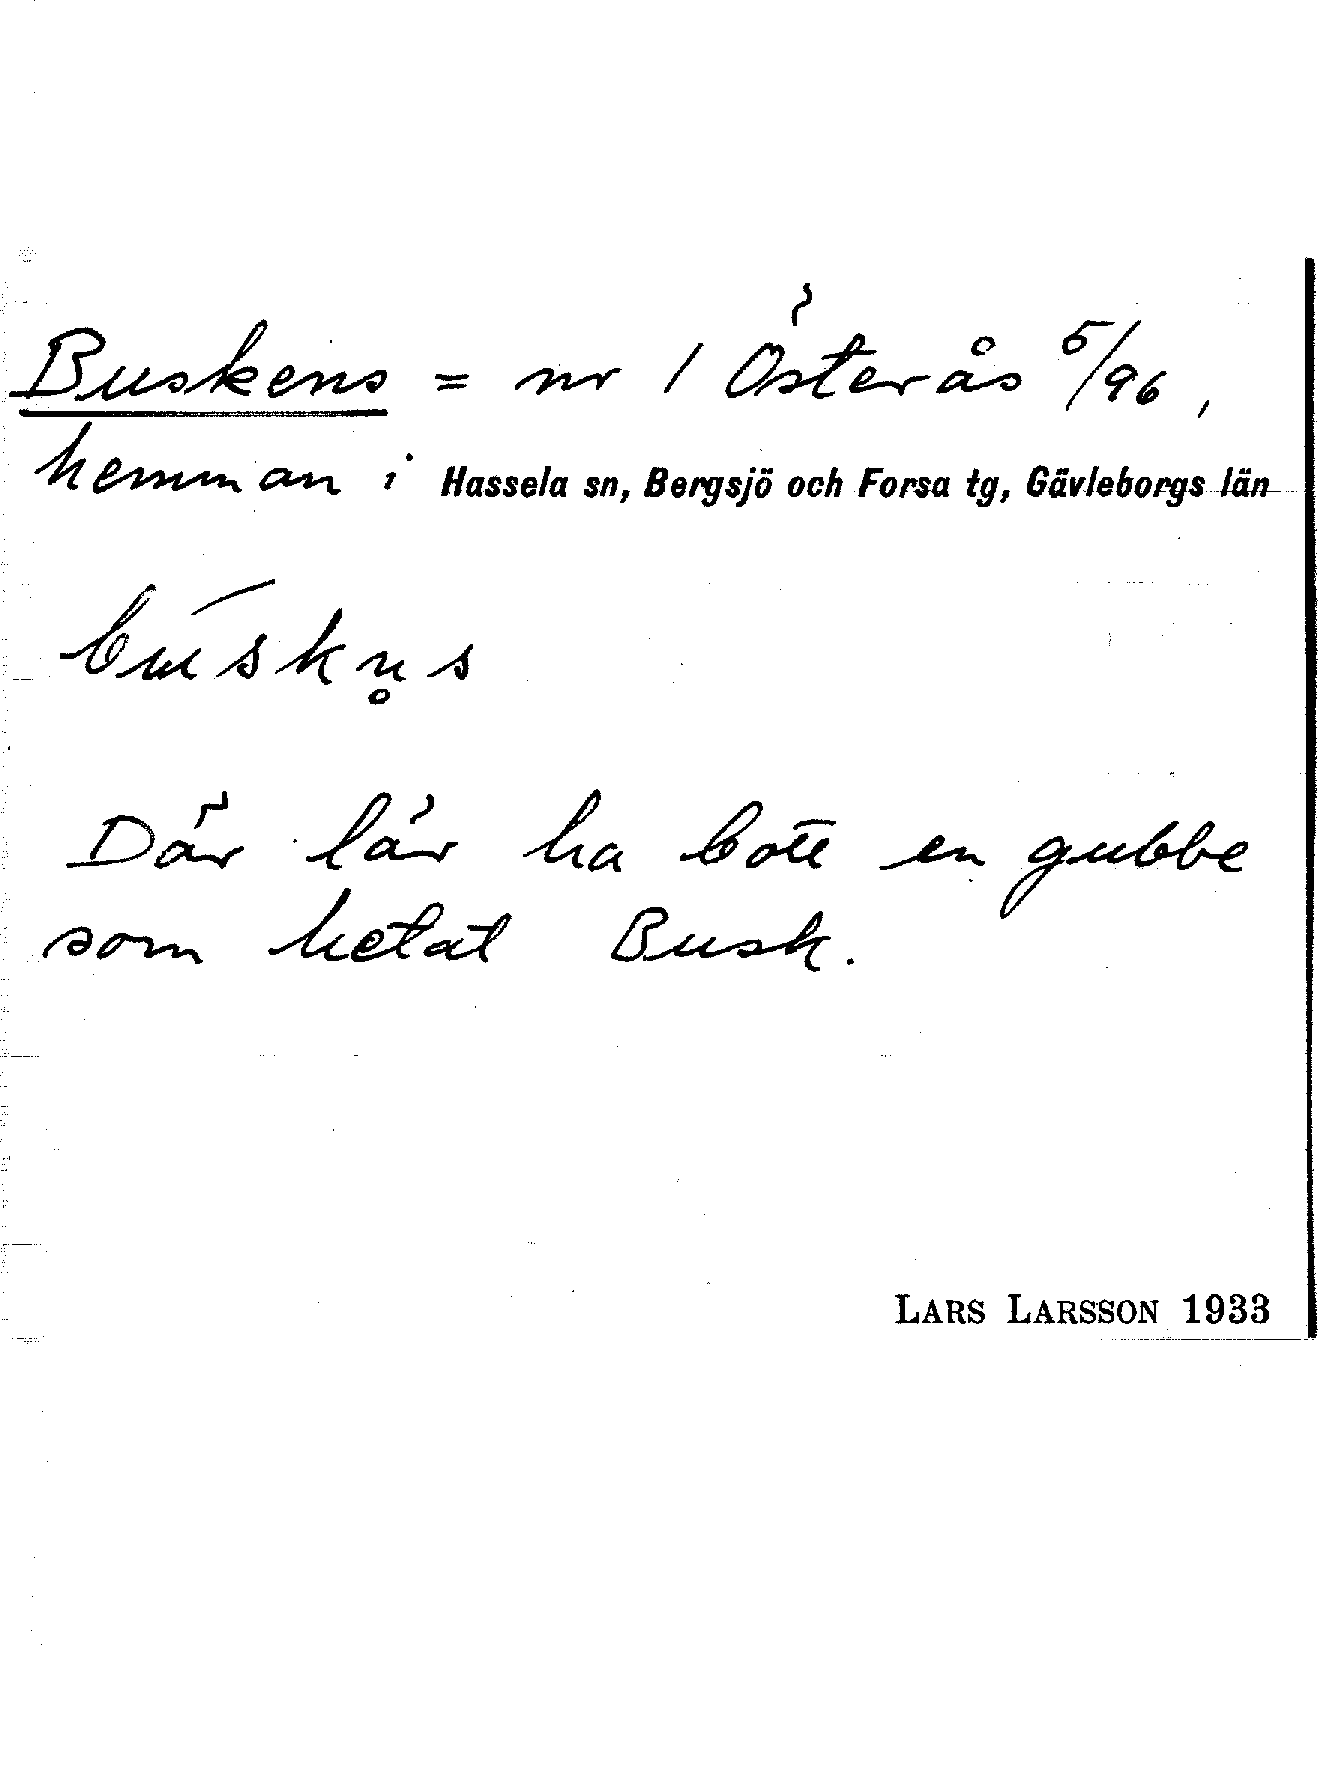 Buskens = nr 1 Österås 5/96,
hemman i Hassela sn, Bergsjö och Forsa tg, Gävleborgs län
búskn̥s
Där lär ha bott en gubbe
som hetat Busk.
LARS LARSSON 1933